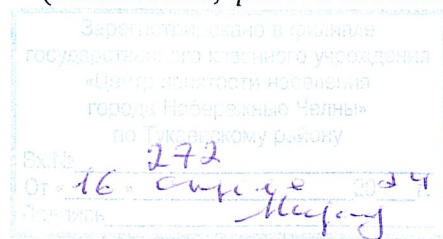 Зарегистрировано в филиале
государственного казенного учреждения
«Центр занятости населения
города Набережные Челны»
по Тукаевскому району
Вх.№ 272
От «16» апреля 2024 г.
Подпись